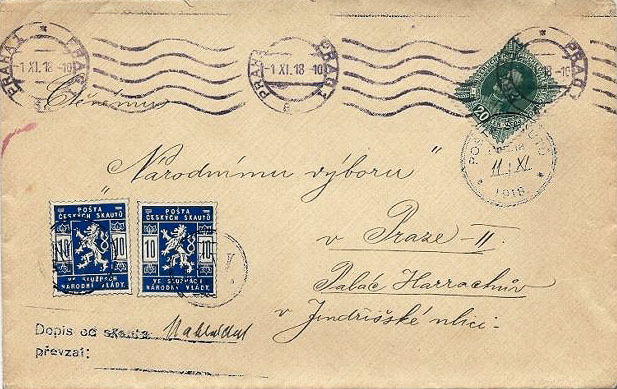 PRAHA 1 PRAG
-1 XI. 18 -10
PRAHA PRAG
-1 XI. 18 -10
3
PRAG
20
II. XI.
1918
„Národnímu výboru"
v Praze-II.
Palác Harrachův
v Jindřišské ulici.
POŠTA
ČESKÝCH SKAUTŮ
10 10
VE SLUŽBÁCH
NÁRODNÍ VLÁDY.
POŠTA
ČESKÝCH SKAUTŮ
10 10
VE SLUŽBÁCH
NÁRODNÍ VLÁDY.
Dopis od skauta
převzal: